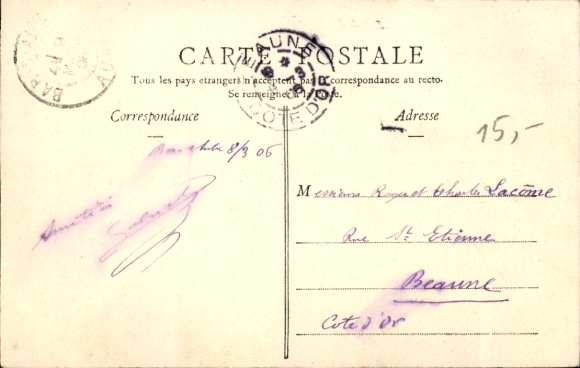 CARTE POSTALE
Tous les pays etrangers n'acceptent pas la correspondance au recto.
Se renseigner à la Poste.
Correspondance
Adresse
15,-
8/3 06
Amitiés
Messieurs Roger et Charles Lacôme
Rue St Etienne
Beaune
Cote d'Or
BEAUNE
COTE D'OR
BAR